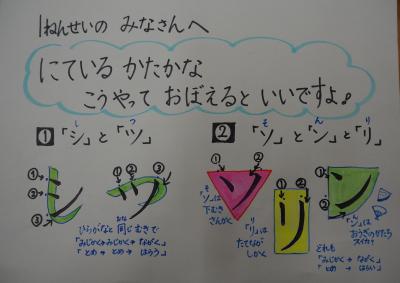 1ねんせいの みなさんへ
にている かたかな
こうやって おぼえると いいですよ。
1 「シ」と「ツ」
し つ
2 「ソ」と「ン」と「リ」
そ ん り
① ② ③
シ
① ② ③
ツ
ひらがなと同じむきで
おな
「みじかく→みじかく→ながく」
「とめ→とめ→はらう」
① ②
ソ
「ソ」は
そ
下むき
さんかく
① ②
リ
「リ」は
り
たてなが
しかく
① ②
ン
「ン」は
ん
おうぎのかたち
スイカ?
どれも
「みじかく→ながく」
「とめ→はらい」